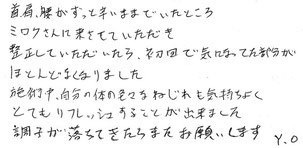 首肩、腰がずっと辛いままでいたところ
ミロクさんに来させていただき
整正していただいたら、初回で気になってた部分が
ほとんどなくなりました
施術中、自分の体の色々なねじれも気持ちよく
とてもリフレッシュすることが出来ました
調子が落ちてきたらまたお願いします Y.O